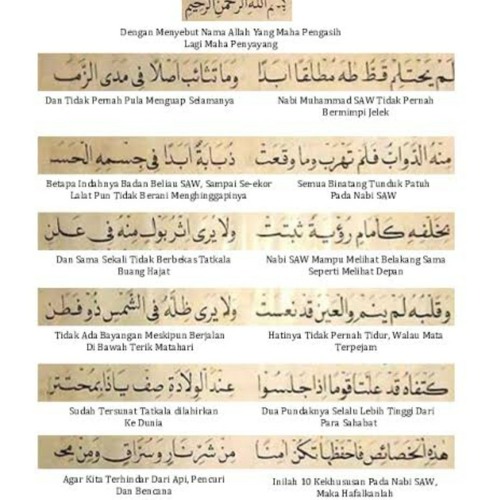 بسم الله الرحمن الرحيم
Dengan Menyebut Nama Allah Yang Maha Pengasih
Lagi Maha Penyayang
لم يحتلم قط طه مطلقا ابدا وما تثائب اصلا في مدى الزمـ
Nabi Muhammad SAW Tidak Pernah
Bermimpi Jelek
Dan Tidak Pernah Pula Menguap Selamanya
منه الدواب فلم تهرب وما وقعت ذبابة ابدا في جسمه الحسـ
Semua Binatang Tunduk Patuh
Pada Nabi SAW
Betapa Indahnya Badan Beliau SAW, Sampai Se-ekor
Lalat Pun Tidak Berani Menghinggapinya
بخلفه كامام رؤية ثبتت ولا يرى اثر بول منه في علن
Nabi SAW Mampu Melihat Belakang Sama
Seperti Melihat Depan
Dan Sama Sekali Tidak Berbekas Tatkala
Buang Hajat
وقلبه لم ينم والعين قد نعست ولا يرى ظله في الشمس ذو فطن
Hatinya Tidak Pernah Tidur, Walau Mata
Terpejam
Tidak Ada Bayangan Meskipun Berjalan
Di Bawah Terik Matahari
كتفاه قد علتا قوما اذا جلسوا عند الولادة صف يا ذا بمختتن
Dua Pundaknya Selalu Lebih Tinggi Dari
Para Sahabat
Sudah Tersunat Tatkala dilahirkan
Ke Dunia
هذه الخصائص فاحفظها تكن امنا من شر نار وسراق ومن محـ
Inilah 10 Kekhususan Pada Nabi SAW,
Maka Hafalkanlah
Agar Kita Terhindar Dari Api, Pencuri
Dan Bencana